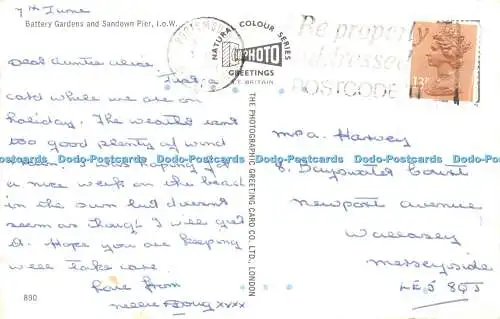 7th June
Battery Gardens and Sandown Pier, I.o.W.
Dear Auntie Alice,
Just a
card while we are on
holiday. The weather isn't
too good plenty of wind
Dodo-Postcards Dodo-Postcards Dodo-Postcards Dodo-Postcards Dodo-Postcards
I was hoping for
a nice week on the beach
in the sun but doesn't
seem as though I will get
it. Hope you are keeping
well take care
Love from
Nellie & Doug xxxx
890
PORTSMOUTH
NATURAL COLOUR SERIES
PHOTO
GREETINGS
BRITAIN
THE PHOTOGRAPHIC GREETING CARD CO. LTD., LONDON
Be properly
addressed
POSTCODE IT
13P
Mrs A. Harvey
6. Bayswater Court
Newport Avenue
Wallasey
Merseyside
L45 8QJ